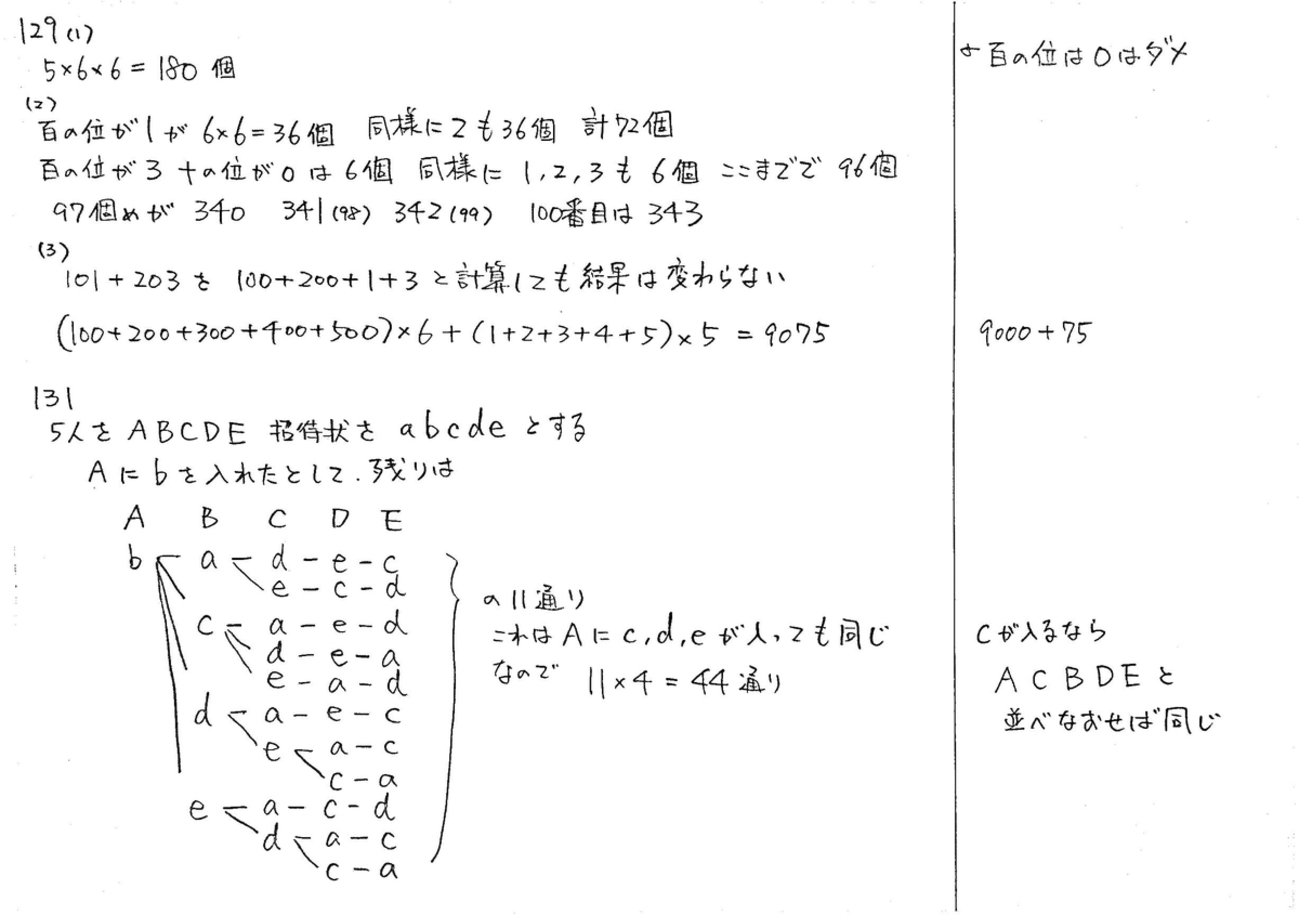 129(1)
5×6×6=180個
←百の位は0はダメ
(2)
百の位が1が6×6=36個 同様に2も36個 計72個
百の位が3 十の位が0は6個 同様に1,2,3も6個 ここまでで96個
97個めが340 341(98) 342(99) 100番目は343
(3)
101+203を100+200+1+3と計算しても結果は変わらない
(100+200+300+400+500)×6+(1+2+3+4+5)×5=9075
9000+75
131
5人をABCDE 招待状をabcdeとする
Aにbを入れたとして.残りは
A B C D E
b a-d-e-c
e-c-d
c-a-e-d
d-e-a
e-a-d
d-a-e-c
e-a-c
c-a
e-a-c-d
d-a-c
c-a
の11通り
これはAにc,d,eが入っても同じ
なので 11×4=44通り
Cが入るなら
ACBDEと
並べなおせば同じ